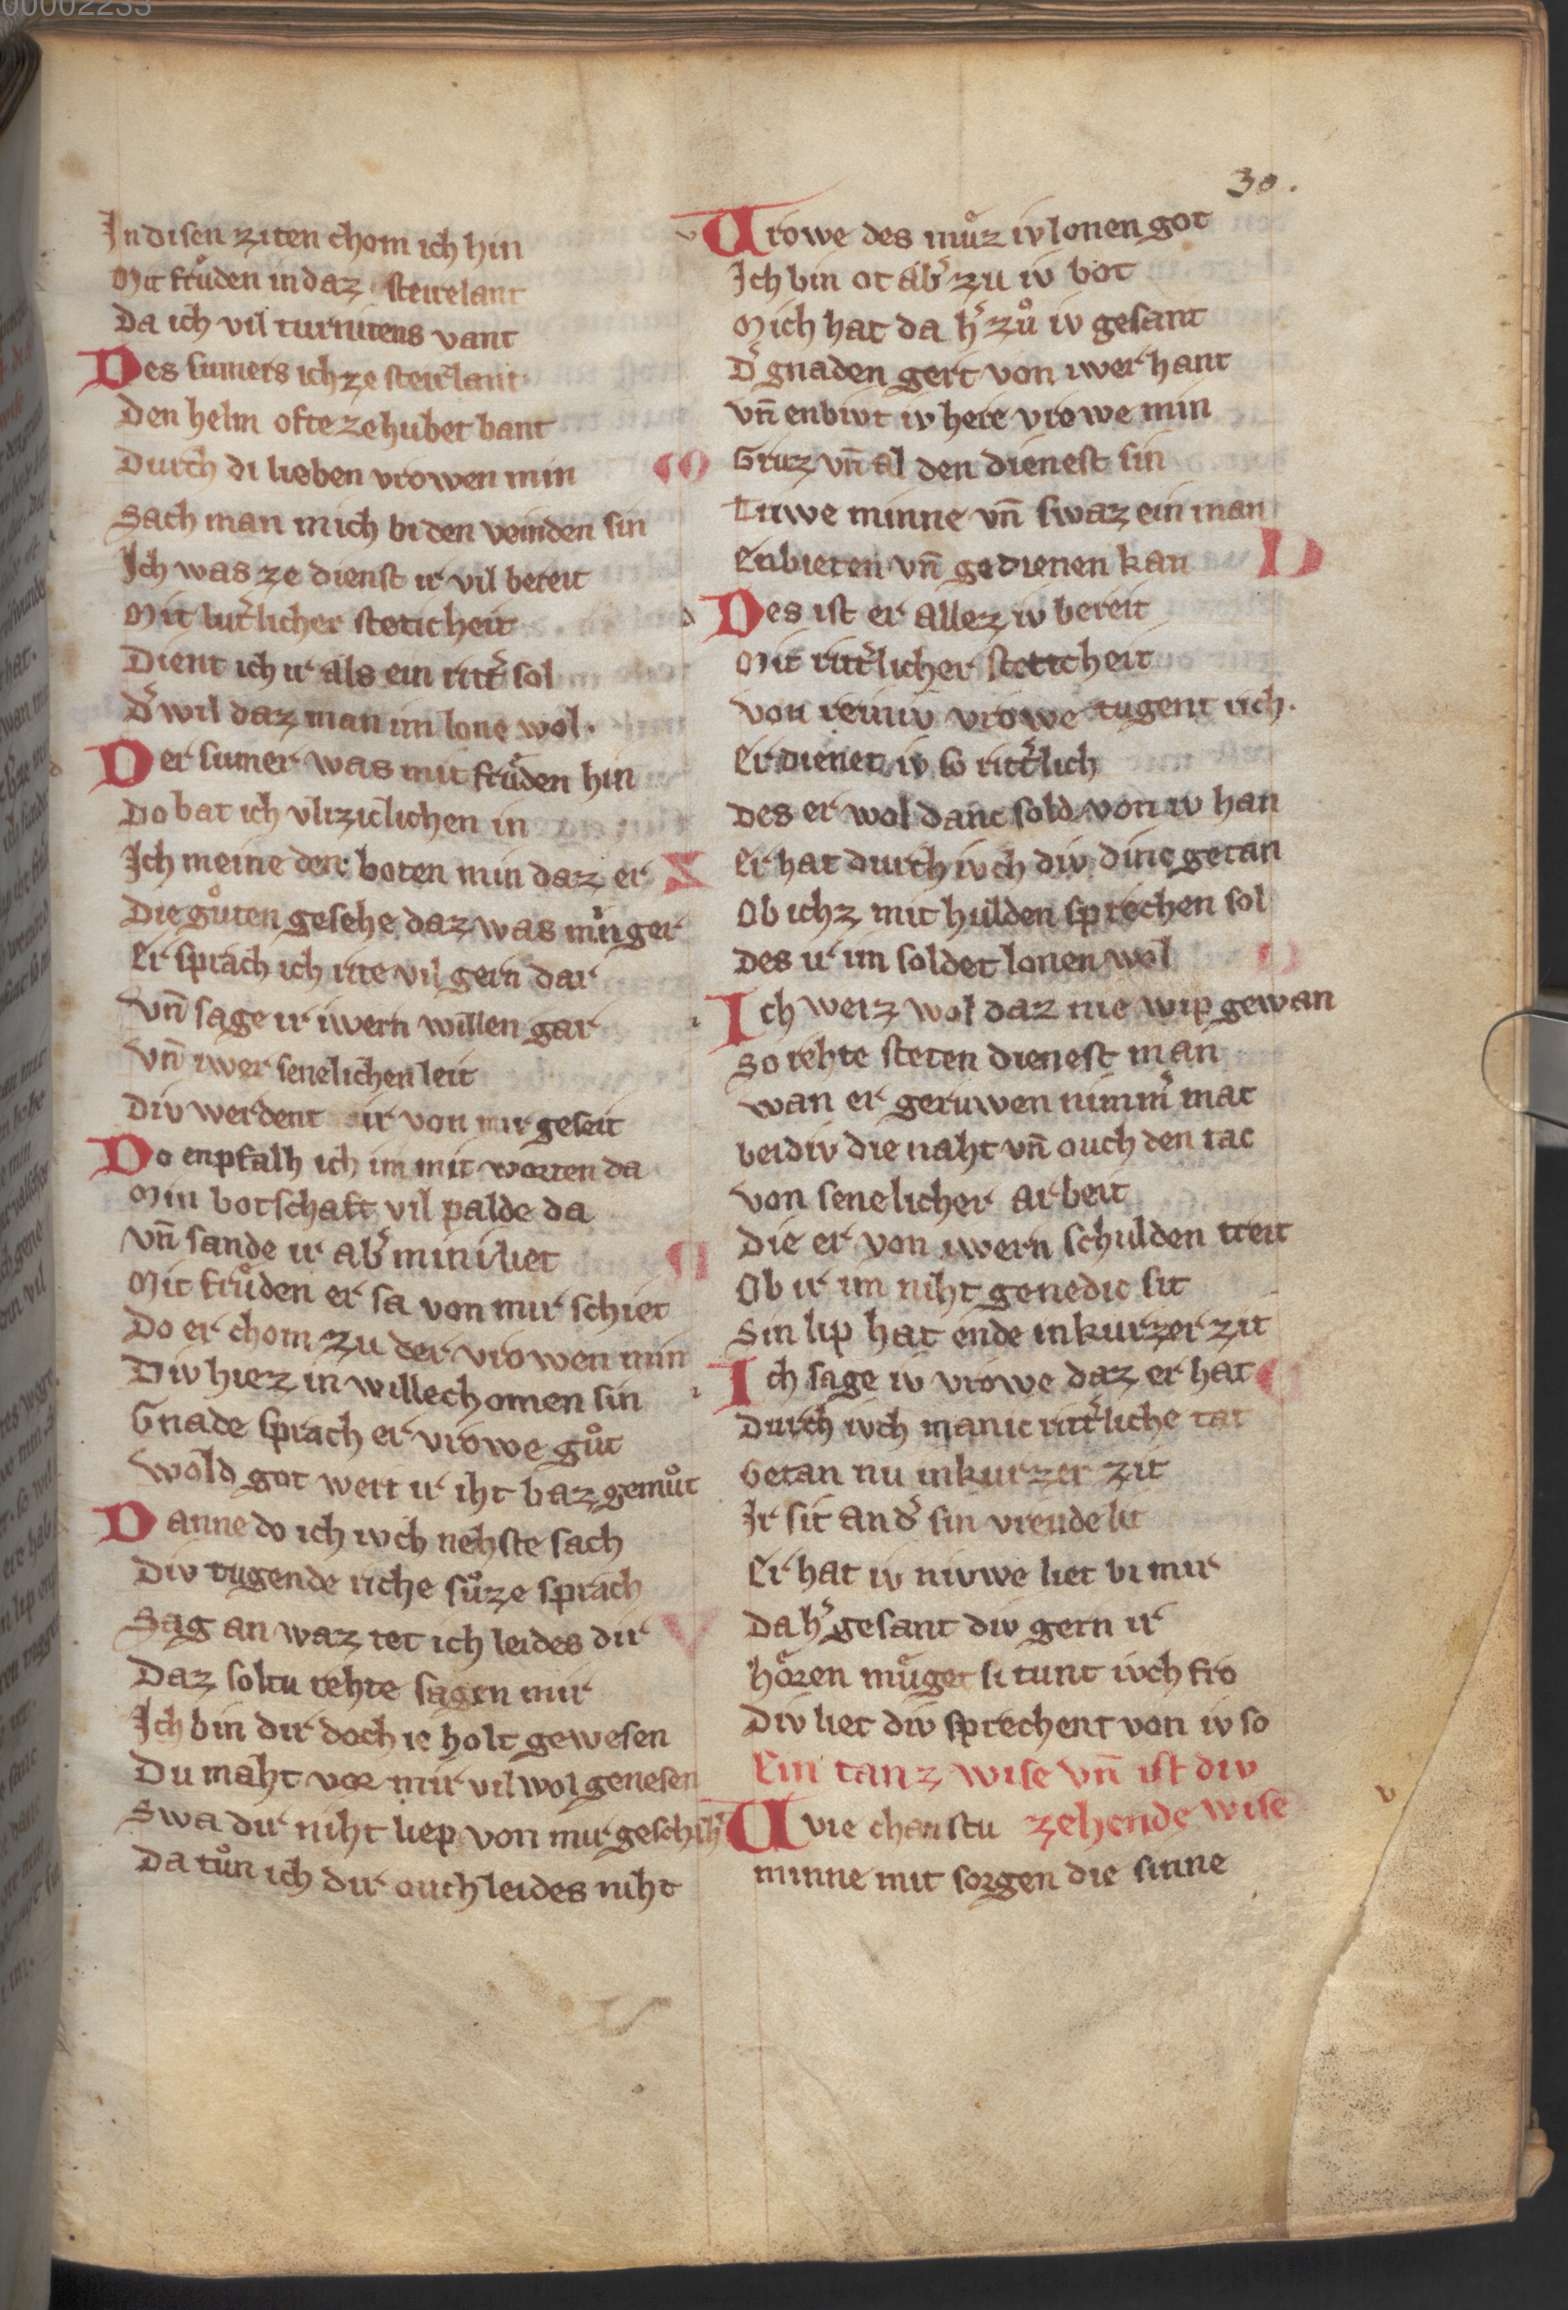 00002233
30.
In disen ziten chom ich hin
Mit frůden in daz steirelant
Da ich vil turnirens vant
Des sumers ich ze steirlant
Den helm ofte ze hubet bant
Durch di lieben vrowen min
Sach man mich bi den veinden sin
Ich was ze dienst ir vil bereit
Mit luterlicher steticheit
Dient ich ir als ein ritter sol
Der wil daz man im lone wol.
Der sumer was mit frůden hin
Do bat ich vliziclichen in
Ich meine den boten min daz er
Die gůten gesehe daz was min ger
Er sprach ich rite vil gern dar
Vn̄ sage ir iwern willen gar
Vn̄ iwer senelichen leit
Div werdent ir von mir geseit
Do enpfalh ich im mit worten da
Min botschaft vil palde da
Vn̄ sande ir ab̾ mini liet
Mit frůden er sa von mir schiet
Do er chom zu der vrowen min
Div hiez in willechomen sin
Gnade sprach er vrowe gůt
Wold got wert ir iht baz gemůt
Danne do ich ivch nehste sach
Div tugende riche sůze sprach
Sag an waz tet ich leides dir
Daz soltu rehte sagen mir
Ich bin dir doch ie holt gewesen
Du maht vor mir vil wol genesen
Swa dir niht liep von mir geschih̾
Da tůn ich dir ouch leides niht
Vrowe des můz iv lonen got
Ich bin ot ab̾ zu iv bot
Mich hat da h̾ zů iv gesant
D̾ gnaden gert von iwer hant
Vn̄ enbivt iv here vrowe min
Gruz vn̄ al den dienest sin
Triwe minne vn̄ swaz ein man
Enbieten vn̄ gedienen kan
Des ist er allez iv bereit
Mit ritt̾licher steticheit
Von reiniv vrowe tugent rich.
Er dienet iv so ritt̾lich
Des er wol danc sold von iv han
Er hat durch ivch div dinc getan
Ob ichz mit hulden sprechen sol
Des ir im soldet lonen wol
Ich weiz wol daz nie wip gewan
So rehte steten dienest man
Wan er geruwen nimm̾ mac
Beidiv die naht vn̄ ouch den tac
Von senelicher arbeit
Die er von iwern schulden treit
Ob ir im niht genedic sit
Sin lip hat ende in kurzer zit
Ich sage iv vrowe daz er hat
Durch ivch manic ritt̾liche tat
Getan nu in kurzer zit
Ir sit an d̾ sin vreude lit
Er hat iv nivwe liet bi mir
Da h̾ gesant div gern ir
Hören můget si tunt ivch fro
Div liet div sprechent von iv so
Ein tanz wise vn̄ ist div
zehende wise
Wie chanstu
minne mit sorgen die sinne